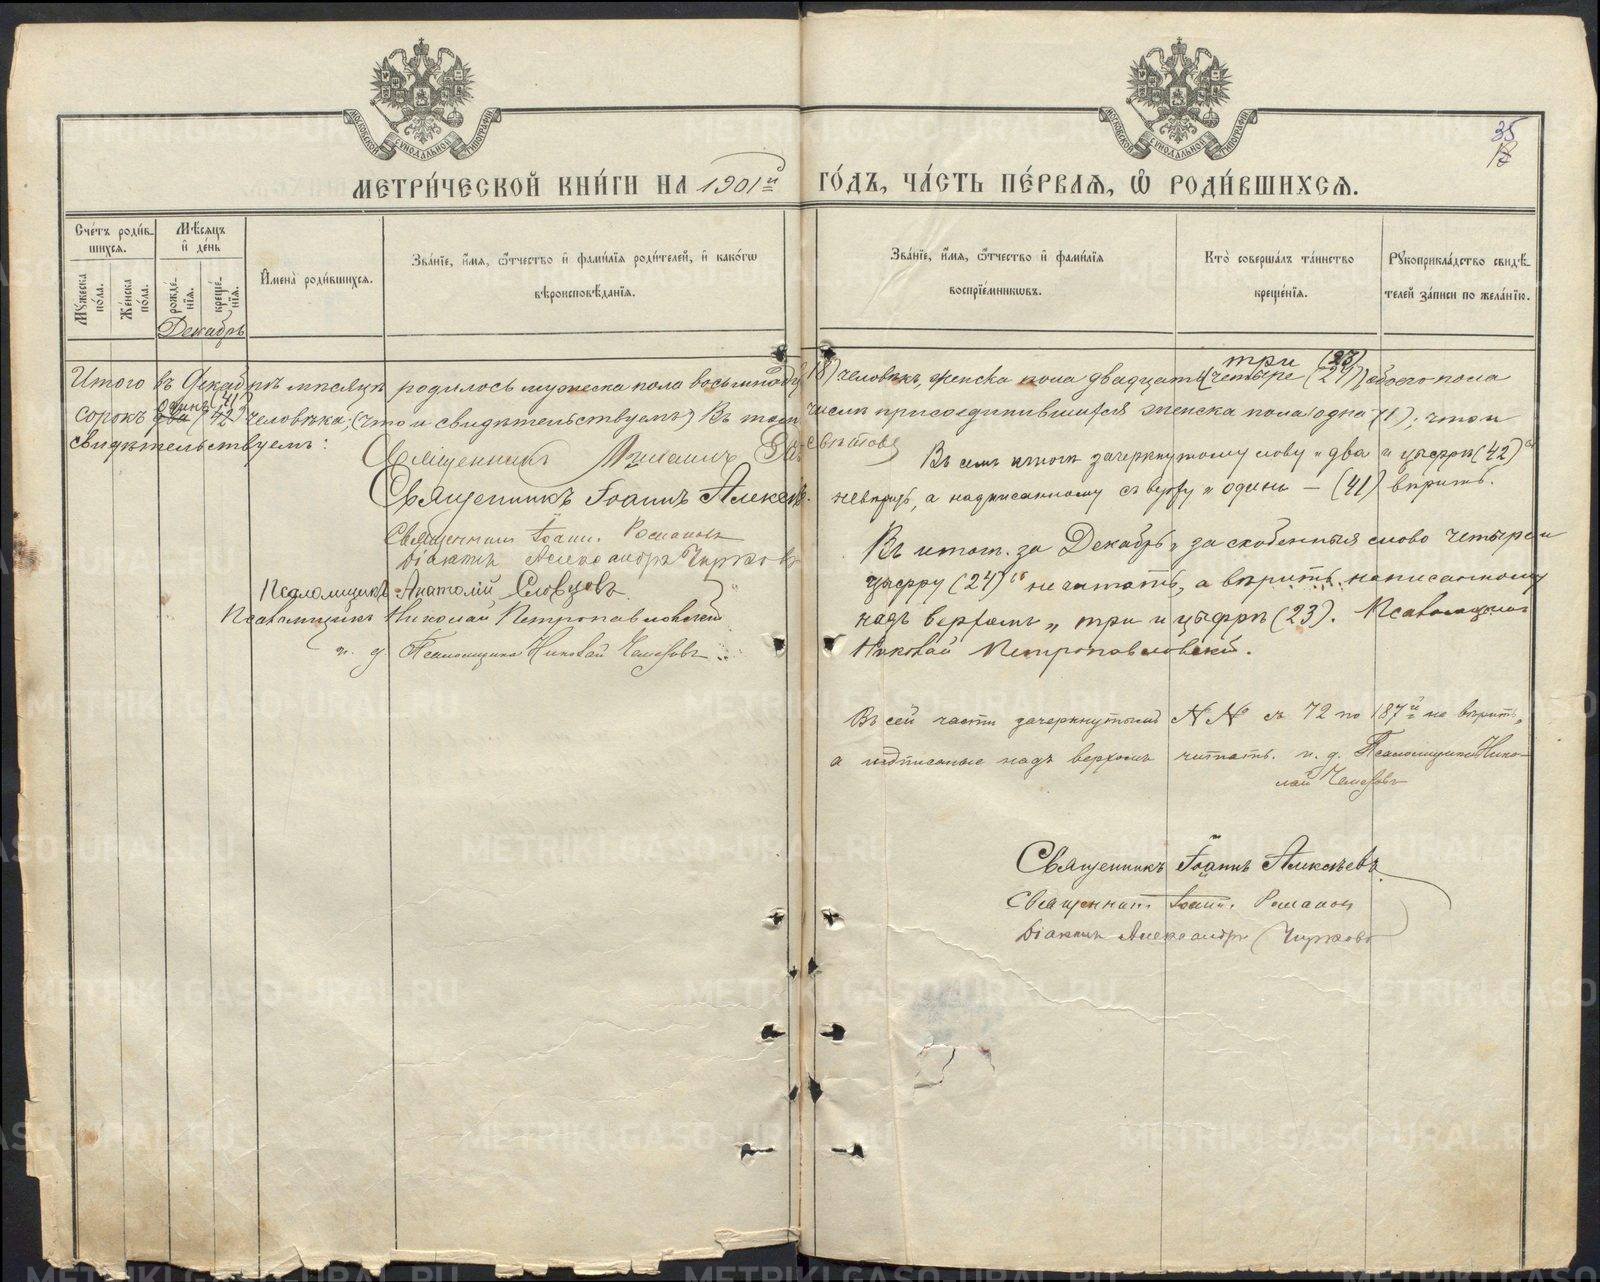 МОСКОВСКОЙ СѴНОДАЛЬНОЙ ТИПОГРАФІИ
МОСКОВСКОЙ СѴНОДАЛЬНОЙ ТИПОГРАФІИ
35
МЕТРИ́ЧЕСКОЙ КНИ́ГИ НА 1901й ГО́ДЪ, ЧА́СТЬ ПЕ́РВАѦ, Ѡ҆ РОДИ́ВШИХСѦ.
Сче́тъ роди́в-
шихсѧ.
Мꙋ́жеска по́ла.
Же́нска по́ла.
Мѣ́сѧцъ и҆ де́нь
рожде́-нїѧ.
креще́-нїѧ.
Декабрь
И҆мена̀ роди́вшихсѧ.
Зва́нїе, и҆́мѧ, ѻ҆́тчество и҆ фами́лїѧ роди́телей, и҆ како́гѡ
вѣроисповѣ́данїѧ.
Зва́нїе, и҆́мѧ, ѻ҆́тчество и҆ фами́лїѧ
воспрїе́мникѡвъ.
Кто̀ соверша́лъ та́инство
креще́нїѧ.
Рꙋкоприкла́дство свидѣ́-
телей за́писи по жела́нїю.
три (23)
Итого въ Декабрѣ мѣсяцѣ родилось мужеска пола восьмнадц (18) человѣкъ, женска пола двадцать (четыре (24)) обоего пола
одинъ (41)
сорокъ два (42) человѣка, (что и свидѣтельствуемъ) Въ томъ числѣ присоединившихся женска пола одна (1); что и
свидѣтельствуемъ:
Священникъ Михаилъ
Священникъ Іоаннъ Алексѣев.
Священникъ Іоанн. Романовъ
Діаконъ Александръ Чирковъ
Псаломщикъ Анатолій Словцовъ
Псаломщикъ Николай Петропавловскій
и. д. Псаломщика Николай
Въ семъ итогѣ зачеркнутому слову „два и цыфрѣ (42)“
невѣрить, а надписанному сверху „один — (41) вѣрить.
Въ итогѣ за Декабрь, заскобенныя слово четыре и
цыфру (24)“ не читать, а вѣрить написанному
надъ верхомъ „три и цыфрѣ (23). Псаломщикъ
Николай Петропавловскій.
Въ сей части зачеркнутымъ №№ съ 72 по 187й не вѣрить,
а подписанные надъ верхомъ читать. и. д. Псаломщика Нико-
лай
Священникъ Іоаннъ Алексѣевъ
Священник Іоанн. Романов
Діаконъ Александръ Чирковъ
METRIKI.GASO-URAL.RU